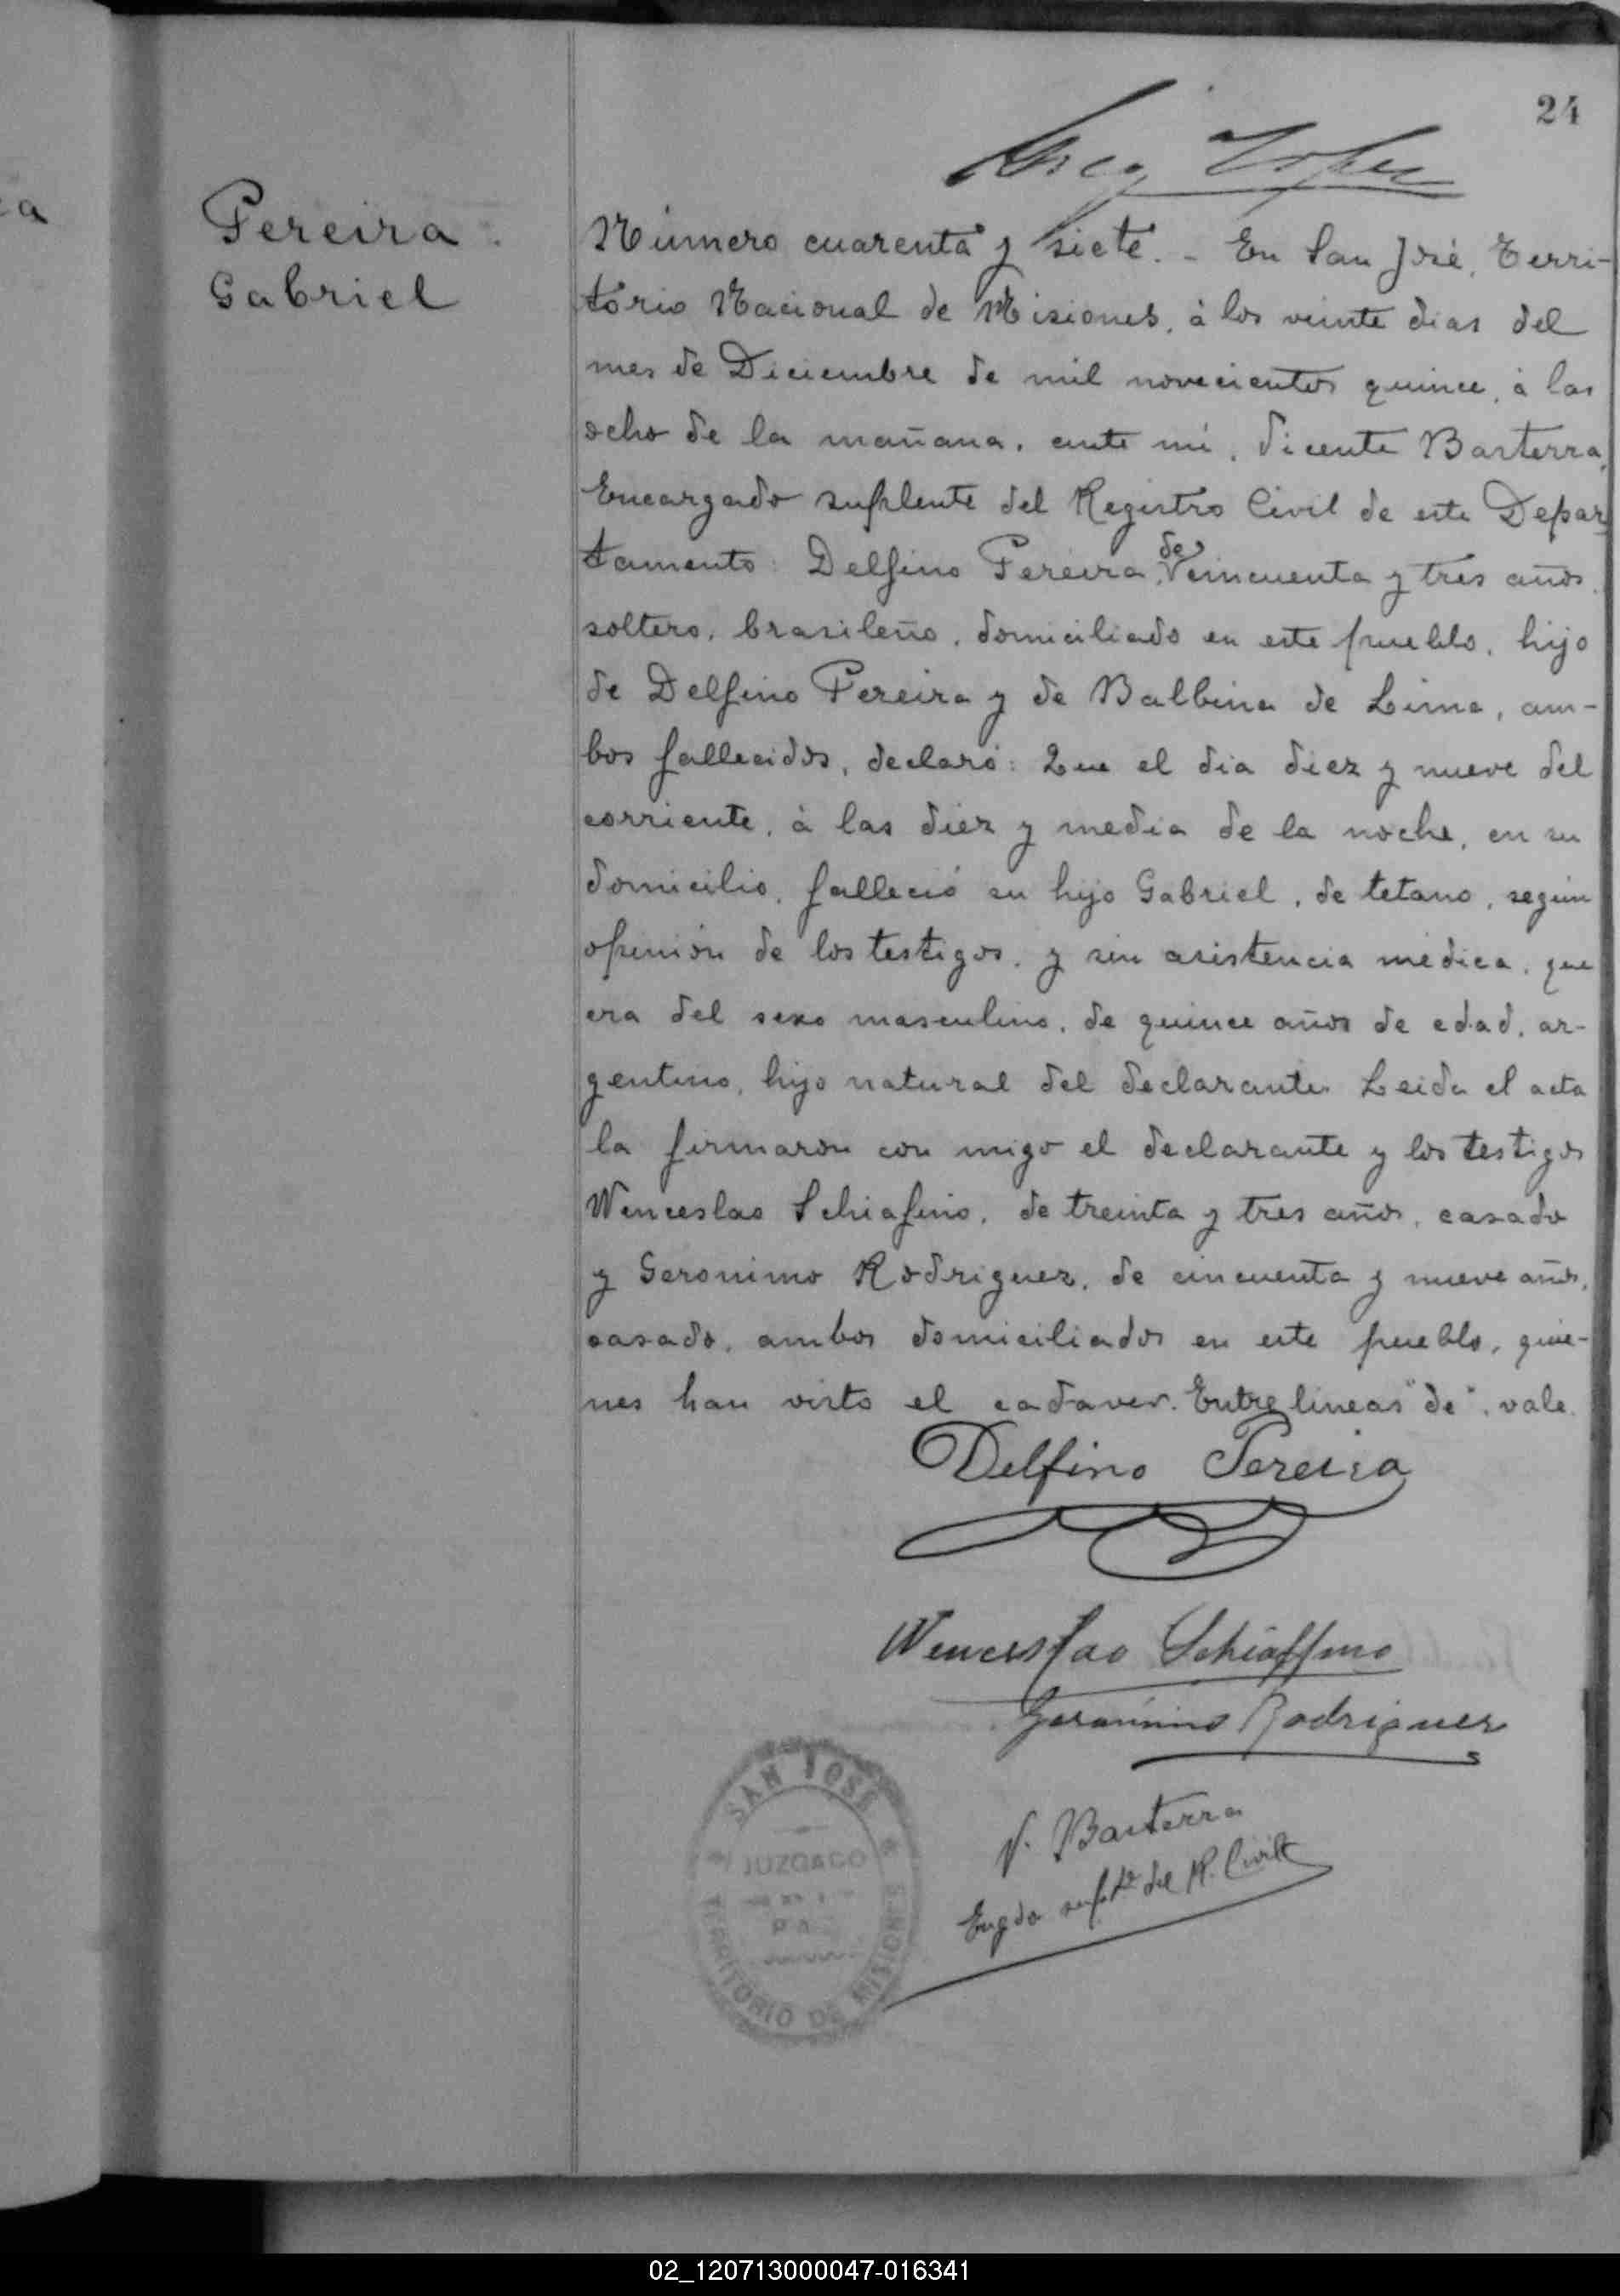 24
Pereira
Gabriel
Número cuarenta y siete. - En San José, Terri-
torio Nacional de Misiones, à los veinte dias del
mes de Diciembre de mil novecientos quince, à las
ocho de la mañana, ante mi, Vicente Basterra,
Encargado suplente del Registro Civil de este Depar
tamento: Delfino Pereira, de cincuenta y tres años,
soltero, brasileño, domiciliado en este pueblo, hijo
de Delfino Pereira y de Balbina de Lima, am-
bos fallecidos, declaró: Que el dia diez y nueve del
corriente, à las diez y media de la noche, en su
domicilio, falleció su hijo Gabriel, de tetano, según
opinión de los testigos, y sin asistencia médica, que
era del sexo masculino, de quince años de edad, ar-
gentino, hijo natural del declarante. Leida el acta
la firmaron con migo el declarante y los testigos
Wenceslao Schiafino, de treinta y tres años, casado
y Geronimo Rodriguez, de cincuenta y nueve años,
casado, ambos domiciliados en este pueblo, quie-
nes han visto el cadaver. Entre lineas "de", vale.
Delfino Pereira
Wenceslao Schiaffino
Geronimo Rodriguez
V. Basterra
Engdo supte del R. Civil
SAN JOSÉ
JUZGADO
DE
PAZ
TERRITORIO DE MISIONES
02_120713000047-016341